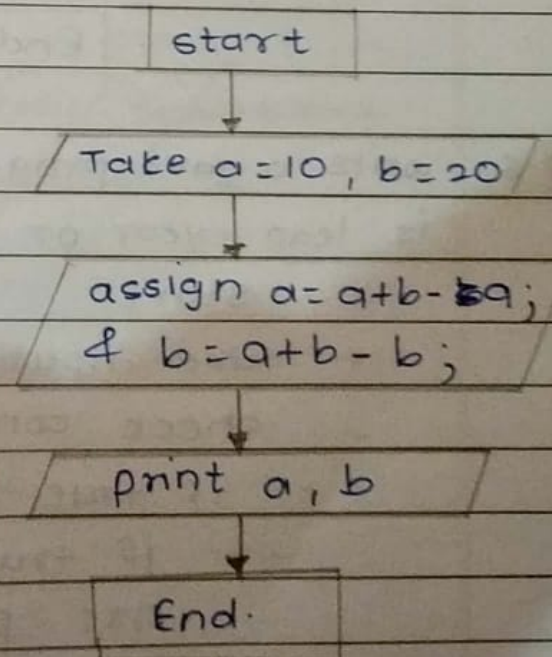 start
Take a=10, b=20
assign a=a+b-a;
& b=a+b-b;
print a, b
End.